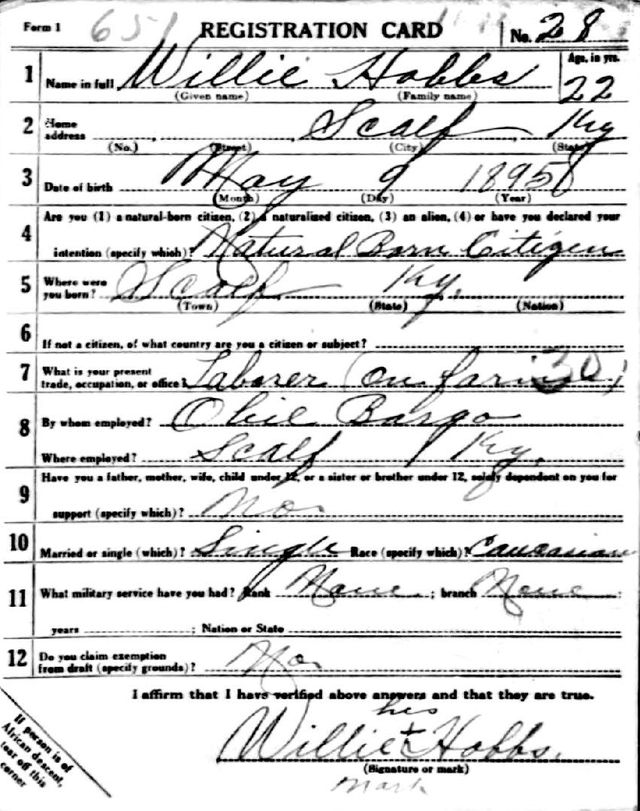 Form 1 651 REGISTRATION CARD No. 28
1 Name in full Willie Hobbs Age, in yrs. 22
(Given name) (Family name)
2 Home address Scalf Ky
(No.) (Street) (City) (State)
3 Date of birth May 9 1895
(Month) (Day) (Year)
Are you (1) a natural-born citizen, (2) a naturalized citizen, (3) an alien, (4) or have you declared your
4 intention (specify which)? Natural Born Citizen
5 Where were you born? Scalf Ky.
(Town) (State) (Nation)
6 If not a citizen, of what country are you a citizen or subject?
7 What is your present trade, occupation, or office? Laborer (on farm) 30
8 By whom employed? Obie Bargo
Where employed? Scalf Ky.
9 Have you a father, mother, wife, child under 12, or a sister or brother under 12, solely dependent on you for
support (specify which)? No
10 Married or single (which)? Single Race (specify which)? Caucasian
11 What military service have you had? Rank None ; branch None ;
years ; Nation or State
12 Do you claim exemption
from draft (specify grounds)? No
I affirm that I have verified above answers and that they are true.
his
Willie + Hobbs.
(Signature or mark)
mark
If person is of
African descent,
tear off this
corner